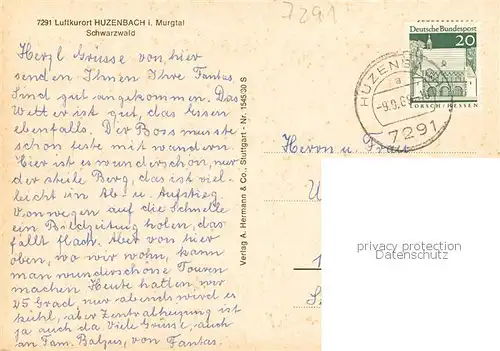 7291
7291 Luftkurort HUZENBACH i. Murgtal
Schwarzwald
Herzl Grüsse von, hier
senden Ihnen Ihre Fantas.
Sind gut angekommen. Das
Wetter ist gut, das Essen
ebenfalls. Der Boss musste
schon feste mit wandern.
Hier ist es wunderschön, nur
der steile Berg, das ist viel-
leicht in Ab- u. Aufstieg
Vonwegen auf die Schnelle
ein Bildzeitung holen, das
fällt flach. Aber von hier
oben, wo wir wohn, kann
man wunderschöne Touren
machen Heute hatten wir
25 Grad, nur abends wird es
kühl, aber Zentralheizung ist
ja auch da Viele Grüsse, auch
an Fam. Balzus, von Fantas.
Verlag A. Hermann & Co., Stuttgart - Nr. 1545/30 S
Deutsche Bundespost
20
LORSCH/HESSEN
HUZENB
a
7291
Herrn u. Frau
privacy protection
Datenschutz